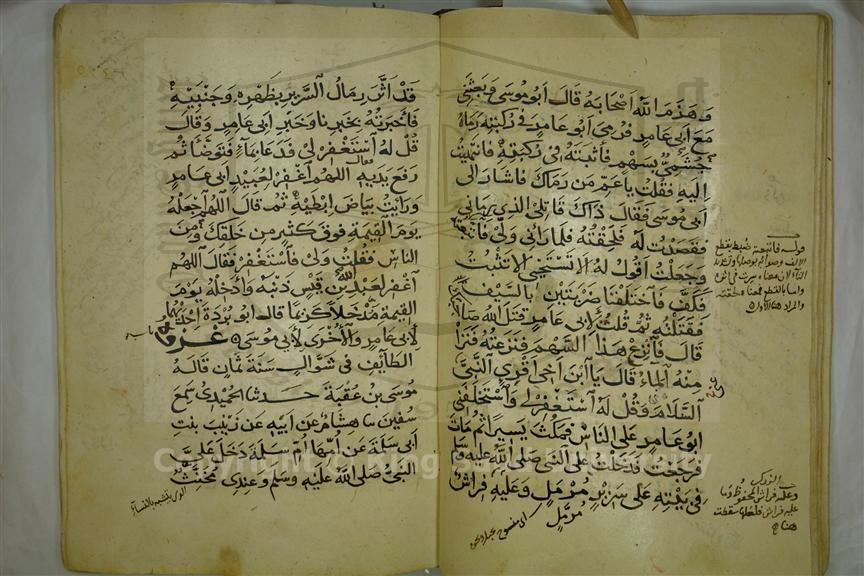 وهزم الله اصحابه قال ابو موسى وبعثني
مع ابي عامر فرمي ابو عامر في ركبته رماه
جشمي بسهم فاثبته في ركبته فانتهيت
اليه فقلت يا عم من رماك فاشار الى
ابي موسى فقال ذاك قاتلي الذي رماني
فقصدت له فلحقته فلما راني ولى فاتبعته
وجعلت اقول له الا تستحيي الا تثبت
فكف فاختلفنا ضربتين بالسيف
فقتلته ثم قلت لابي عامر قتل الله صاحبك
قال فانزع هذا السهم فنزعته فنزا
منه الماء قال يا ابن اخي اقري النبي
السلام وقل له استغفر لي واستخلفني
ابو عامر على الناس فمكث يسيرا ثم مات
فرجعت فدخلت على النبي صلى الله عليه وسلم
في بيته على سرير مرمل وعليه فراش
مرمل
قوله فاتبعته ضبط بقطع
والمراد هنا الاول
وعليه فراش المحفوظ وما
عليه فراش فلعل ما سقطت
هنا
قد اثر رمال السرير بظهره وجنبيه
فاخبرته بخبرنا وخبر ابي عامر وقال
قل له استغفر لي فدعا بماء فتوضا ثم
رفع يديه فقال اللهم اغفر لعبيد ابي عامر
ورايت بياض ابطيه ثم قال اللهم اجعله
يوم القيمة فوق كثير من خلقك ومن
الناس فقلت ولي فاستغفر فقال اللهم
اغفر لعبد الله بن قيس ذنبه وادخله يوم
القيمة مدخلا كريما قال ابو بردة احداهما
لابي عامر والاخرى لابي موسى غزوة
الطائف في شوال سنة ثمان قاله
موسى بن عقبة حدثنا الحميدي سمع
سفين نا هشام عن ابيه عن زينب بنت
ابي سلمة عن امها ام سلمة دخل علي
النبي صلى الله عليه وسلم وعندي مخنث
الذي يتشبه بالنساء